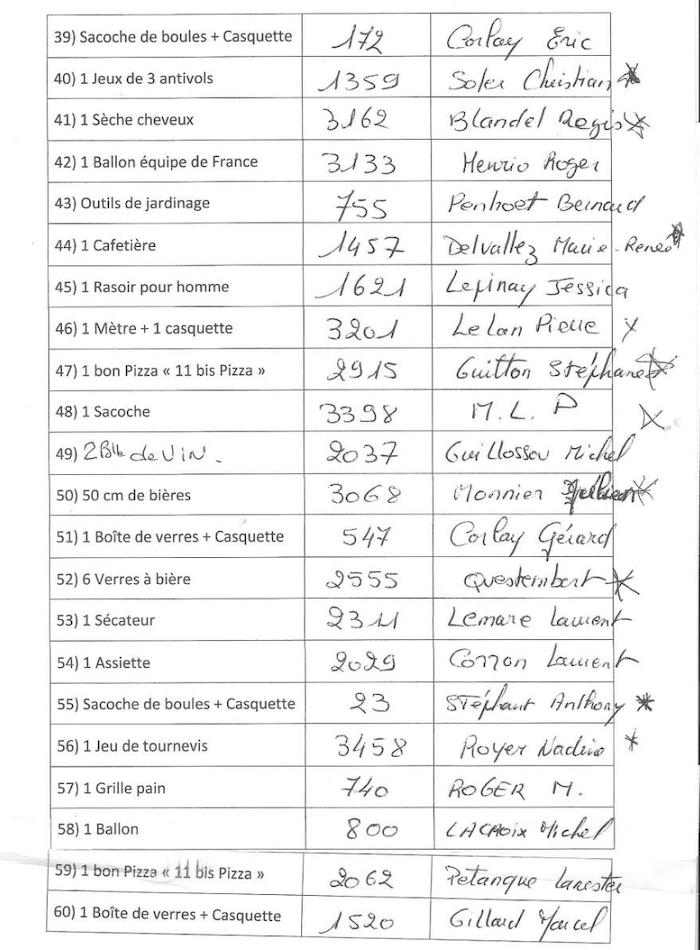 39) Sacoche de boules + Casquette 172 Corlay Eric
40) 1 Jeux de 3 antivols 1359 Soler Christian
41) 1 Sèche cheveux 3162 Blandel Regis
42) 1 Ballon équipe de France 3133 Henrio Roger
43) Outils de jardinage 755 Penhoet Bernard
44) 1 Cafetière 1457 Delvallez Marie-Renée
45) 1 Rasoir pour homme 1621 Lepinay Jessica
46) 1 Mètre + 1 casquette 3201 Le lan Pierre
47) 1 bon Pizza « 11 bis Pizza » 2915 Guitton Stéphane
48) 1 Sacoche 3398 M. L. P
49) 2 Blle de ViN. 2037 Guillossou Michel
50) 50 cm de bières 3068 Monnier
51) 1 Boîte de verres + Casquette 547 Corlay Gérard
52) 6 Verres à bière 2555 Questembert
53) 1 Sécateur 2311 Lemare Laurent
54) 1 Assiette 2029 Laurent
55) Sacoche de boules + Casquette 23 Stéphant Anthony
56) 1 Jeu de tournevis 3458 Royer Nadine
57) 1 Grille pain 740 ROGER M.
58) 1 Ballon 800 LACROIX Michel
59) 1 bon Pizza « 11 bis Pizza » 2062 Petanque Lanester
60) 1 Boîte de verres + Casquette 1520 Gillard Marcel